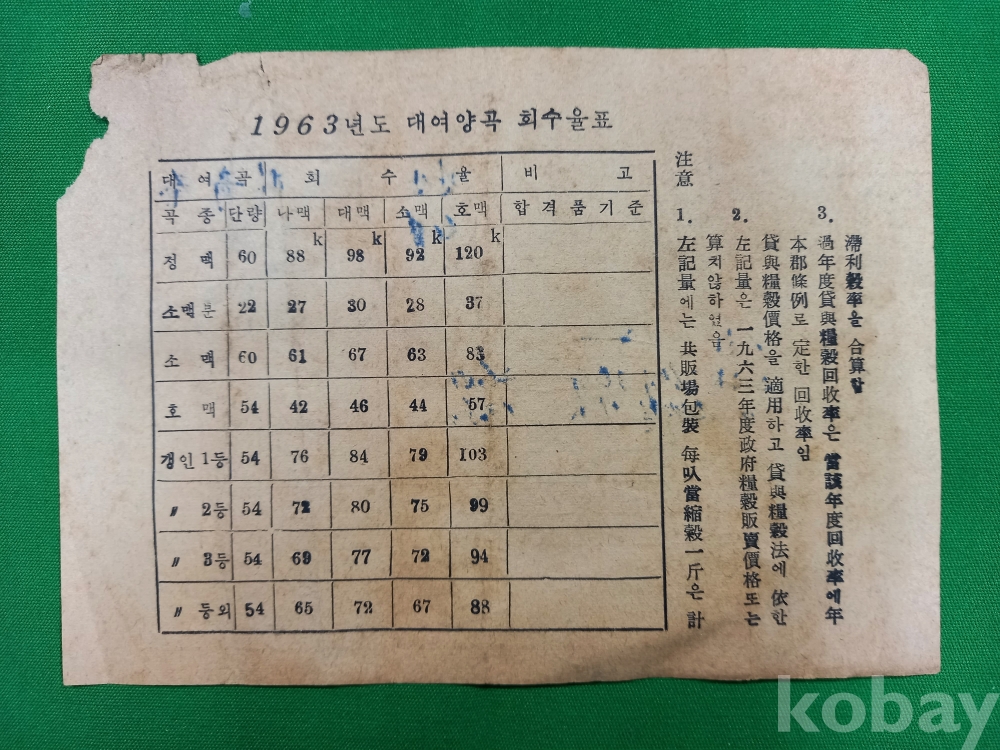 1963년도 대여양곡 회수율표
대여곡 회수율 비고
곡종 단량 나맥 대맥 소맥 호맥 합격품기준
정맥 60 88k 98k 92k 120k
소맥분 22 27 30 28 37
소맥 60 61 67 63 83
호맥 54 42 46 44 57
갱인1등 54 76 84 79 103
〃 2등 54 72 80 75 99
〃 3등 54 69 77 72 94
〃 등외 54 65 72 67 88
注意
1. 左記量에는 共販場包裝 每叺當縮穀一斤은 計
算치않하였음
2. 左記量은 一九六三年度政府糧穀販賣價格또는
貸與糧穀價格을 適用하고 貸與糧穀法에 依한
本郡條例로 定한 回收率임
3. 過年度貸與糧穀回收率은 當該年度回收率에年
滯利穀率을 合算할
kobay